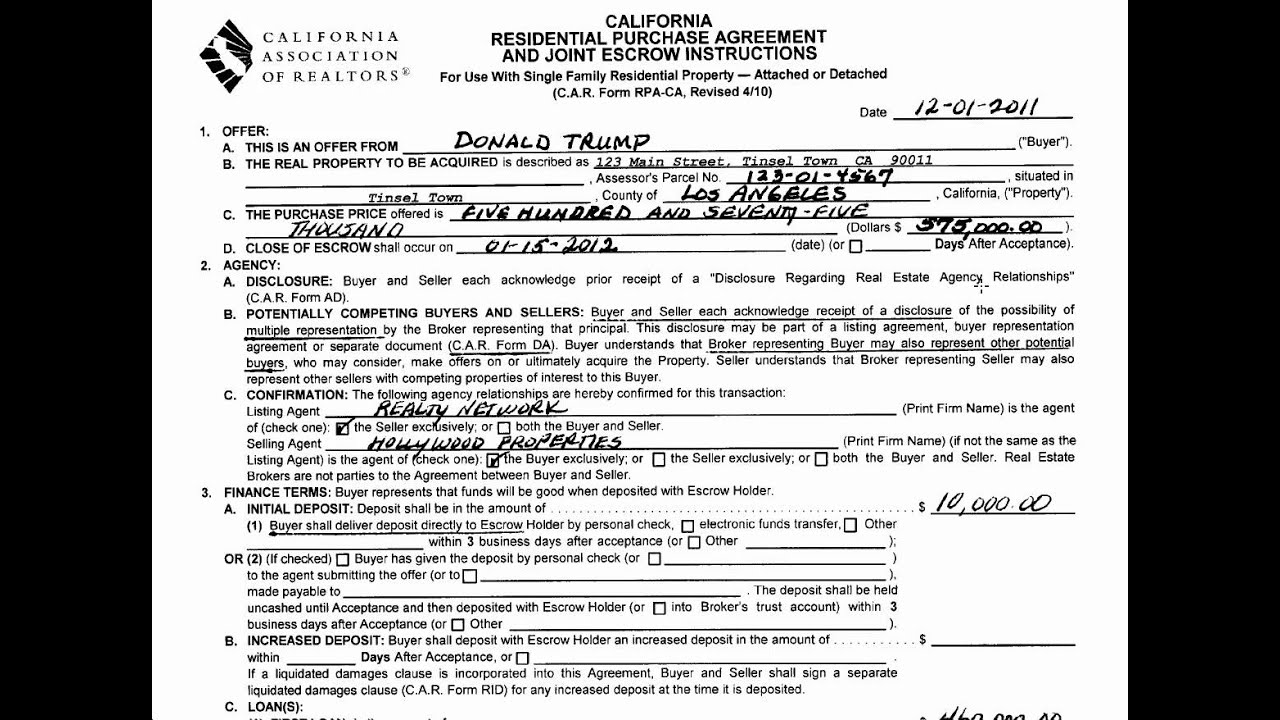 CALIFORNIA
ASSOCIATION
OF REALTORS®
CALIFORNIA
RESIDENTIAL PURCHASE AGREEMENT
AND JOINT ESCROW INSTRUCTIONS
For Use With Single Family Residential Property — Attached or Detached
(C.A.R. Form RPA-CA, Revised 4/10)
Date 12-01-2011
1. OFFER:
A. THIS IS AN OFFER FROM DONALD TRUMP ("Buyer").
B. THE REAL PROPERTY TO BE ACQUIRED is described as 123 Main Street, Tinsel Town CA 90011
, Assessor's Parcel No. 123-01-4567 , situated in
Tinsel Town , County of LOS ANGELES , California, ("Property").
C. THE PURCHASE PRICE offered is FIVE HUNDRED AND SEVENTY-FIVE
THOUSAND (Dollars $ 575,000.00 ).
D. CLOSE OF ESCROW shall occur on 01-15-2012 (date) (or ☐ Days After Acceptance).
2. AGENCY:
A. DISCLOSURE: Buyer and Seller each acknowledge prior receipt of a "Disclosure Regarding Real Estate Agency Relationships"
(C.A.R. Form AD).
B. POTENTIALLY COMPETING BUYERS AND SELLERS: Buyer and Seller each acknowledge receipt of a disclosure of the possibility of
multiple representation by the Broker representing that principal. This disclosure may be part of a listing agreement, buyer representation
agreement or separate document (C.A.R. Form DA). Buyer understands that Broker representing Buyer may also represent other potential
buyers, who may consider, make offers on or ultimately acquire the Property. Seller understands that Broker representing Seller may also
represent other sellers with competing properties of interest to this Buyer.
C. CONFIRMATION: The following agency relationships are hereby confirmed for this transaction:
Listing Agent REALTY NETWORK (Print Firm Name) is the agent
of (check one): ☑ the Seller exclusively; or ☐ both the Buyer and Seller.
Selling Agent HOLLYWOOD PROPERTIES (Print Firm Name) (if not the same as the
Listing Agent) is the agent of (check one): ☑ the Buyer exclusively; or ☐ the Seller exclusively; or ☐ both the Buyer and Seller. Real Estate
Brokers are not parties to the Agreement between Buyer and Seller.
3. FINANCE TERMS: Buyer represents that funds will be good when deposited with Escrow Holder.
A. INITIAL DEPOSIT: Deposit shall be in the amount of . . . . . . . . . . $ 10,000.00
(1) Buyer shall deliver deposit directly to Escrow Holder by personal check, ☐ electronic funds transfer, ☐ Other
within 3 business days after acceptance (or ☐ Other );
OR (2) (If checked) ☐ Buyer has given the deposit by personal check (or ☐ )
to the agent submitting the offer (or to ☐ ),
made payable to . The deposit shall be held
uncashed until Acceptance and then deposited with Escrow Holder (or ☐ into Broker's trust account) within 3
business days after Acceptance (or ☐ Other ).
B. INCREASED DEPOSIT: Buyer shall deposit with Escrow Holder an increased deposit in the amount of . . . . . . . . . . $
within Days After Acceptance, or ☐ .
If a liquidated damages clause is incorporated into this Agreement, Buyer and Seller shall sign a separate
liquidated damages clause (C.A.R. Form RID) for any increased deposit at the time it is deposited.
C. LOAN(S):